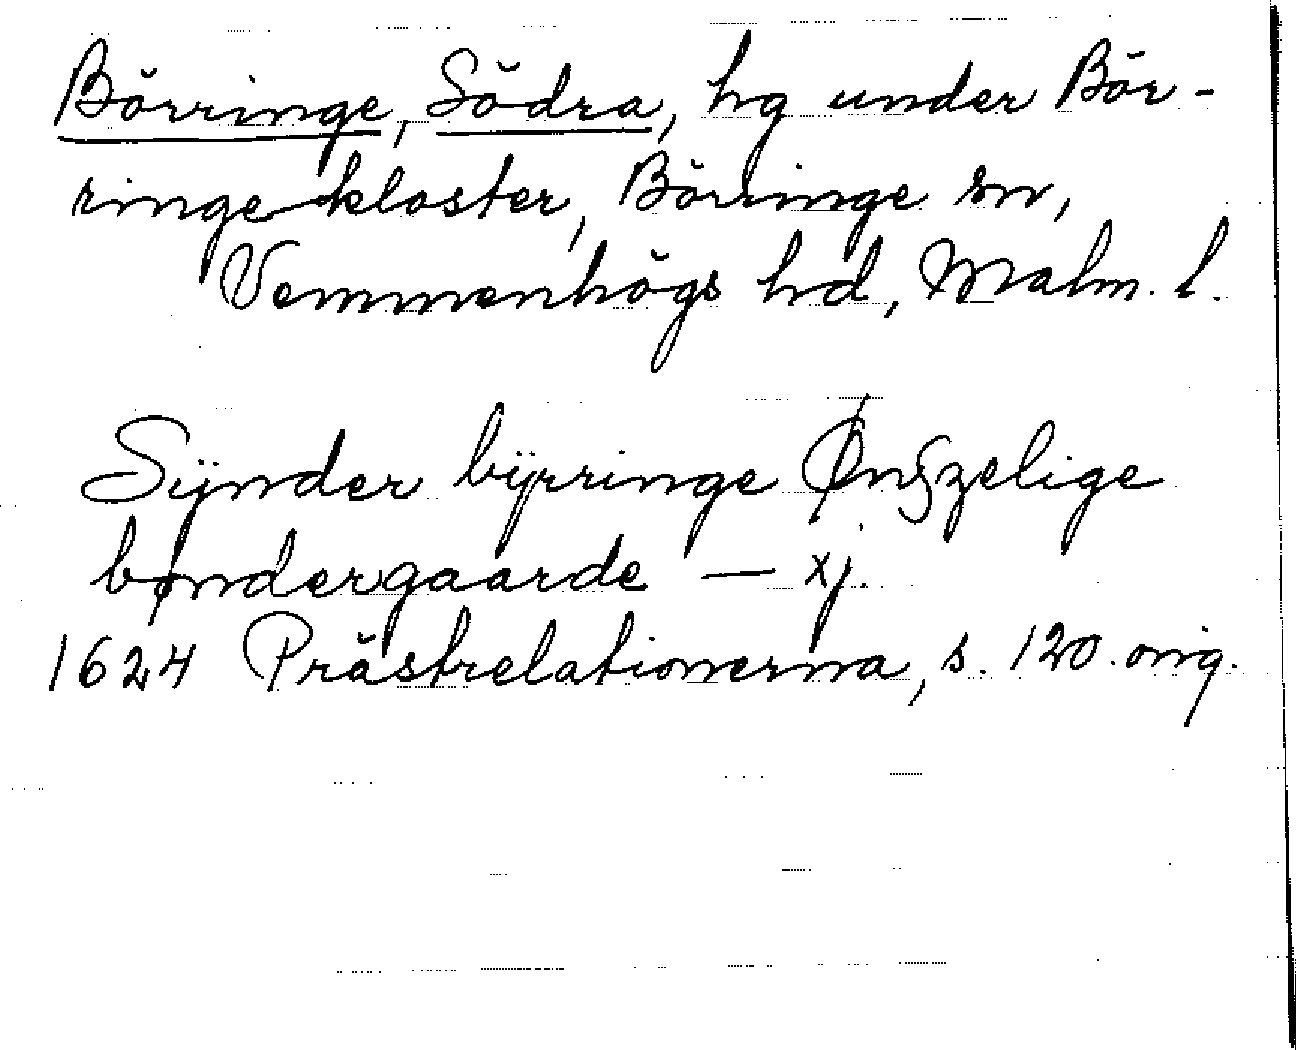 Börringe, Södra, hg under Bör-
ringekloster, Börringe sn,
Vemmenhögs hd, Malm. l.
Sÿnder bÿrringe Øngzelige
bøndergaarde — xj.
1624 Prästrelationerna, s. 120. orig.